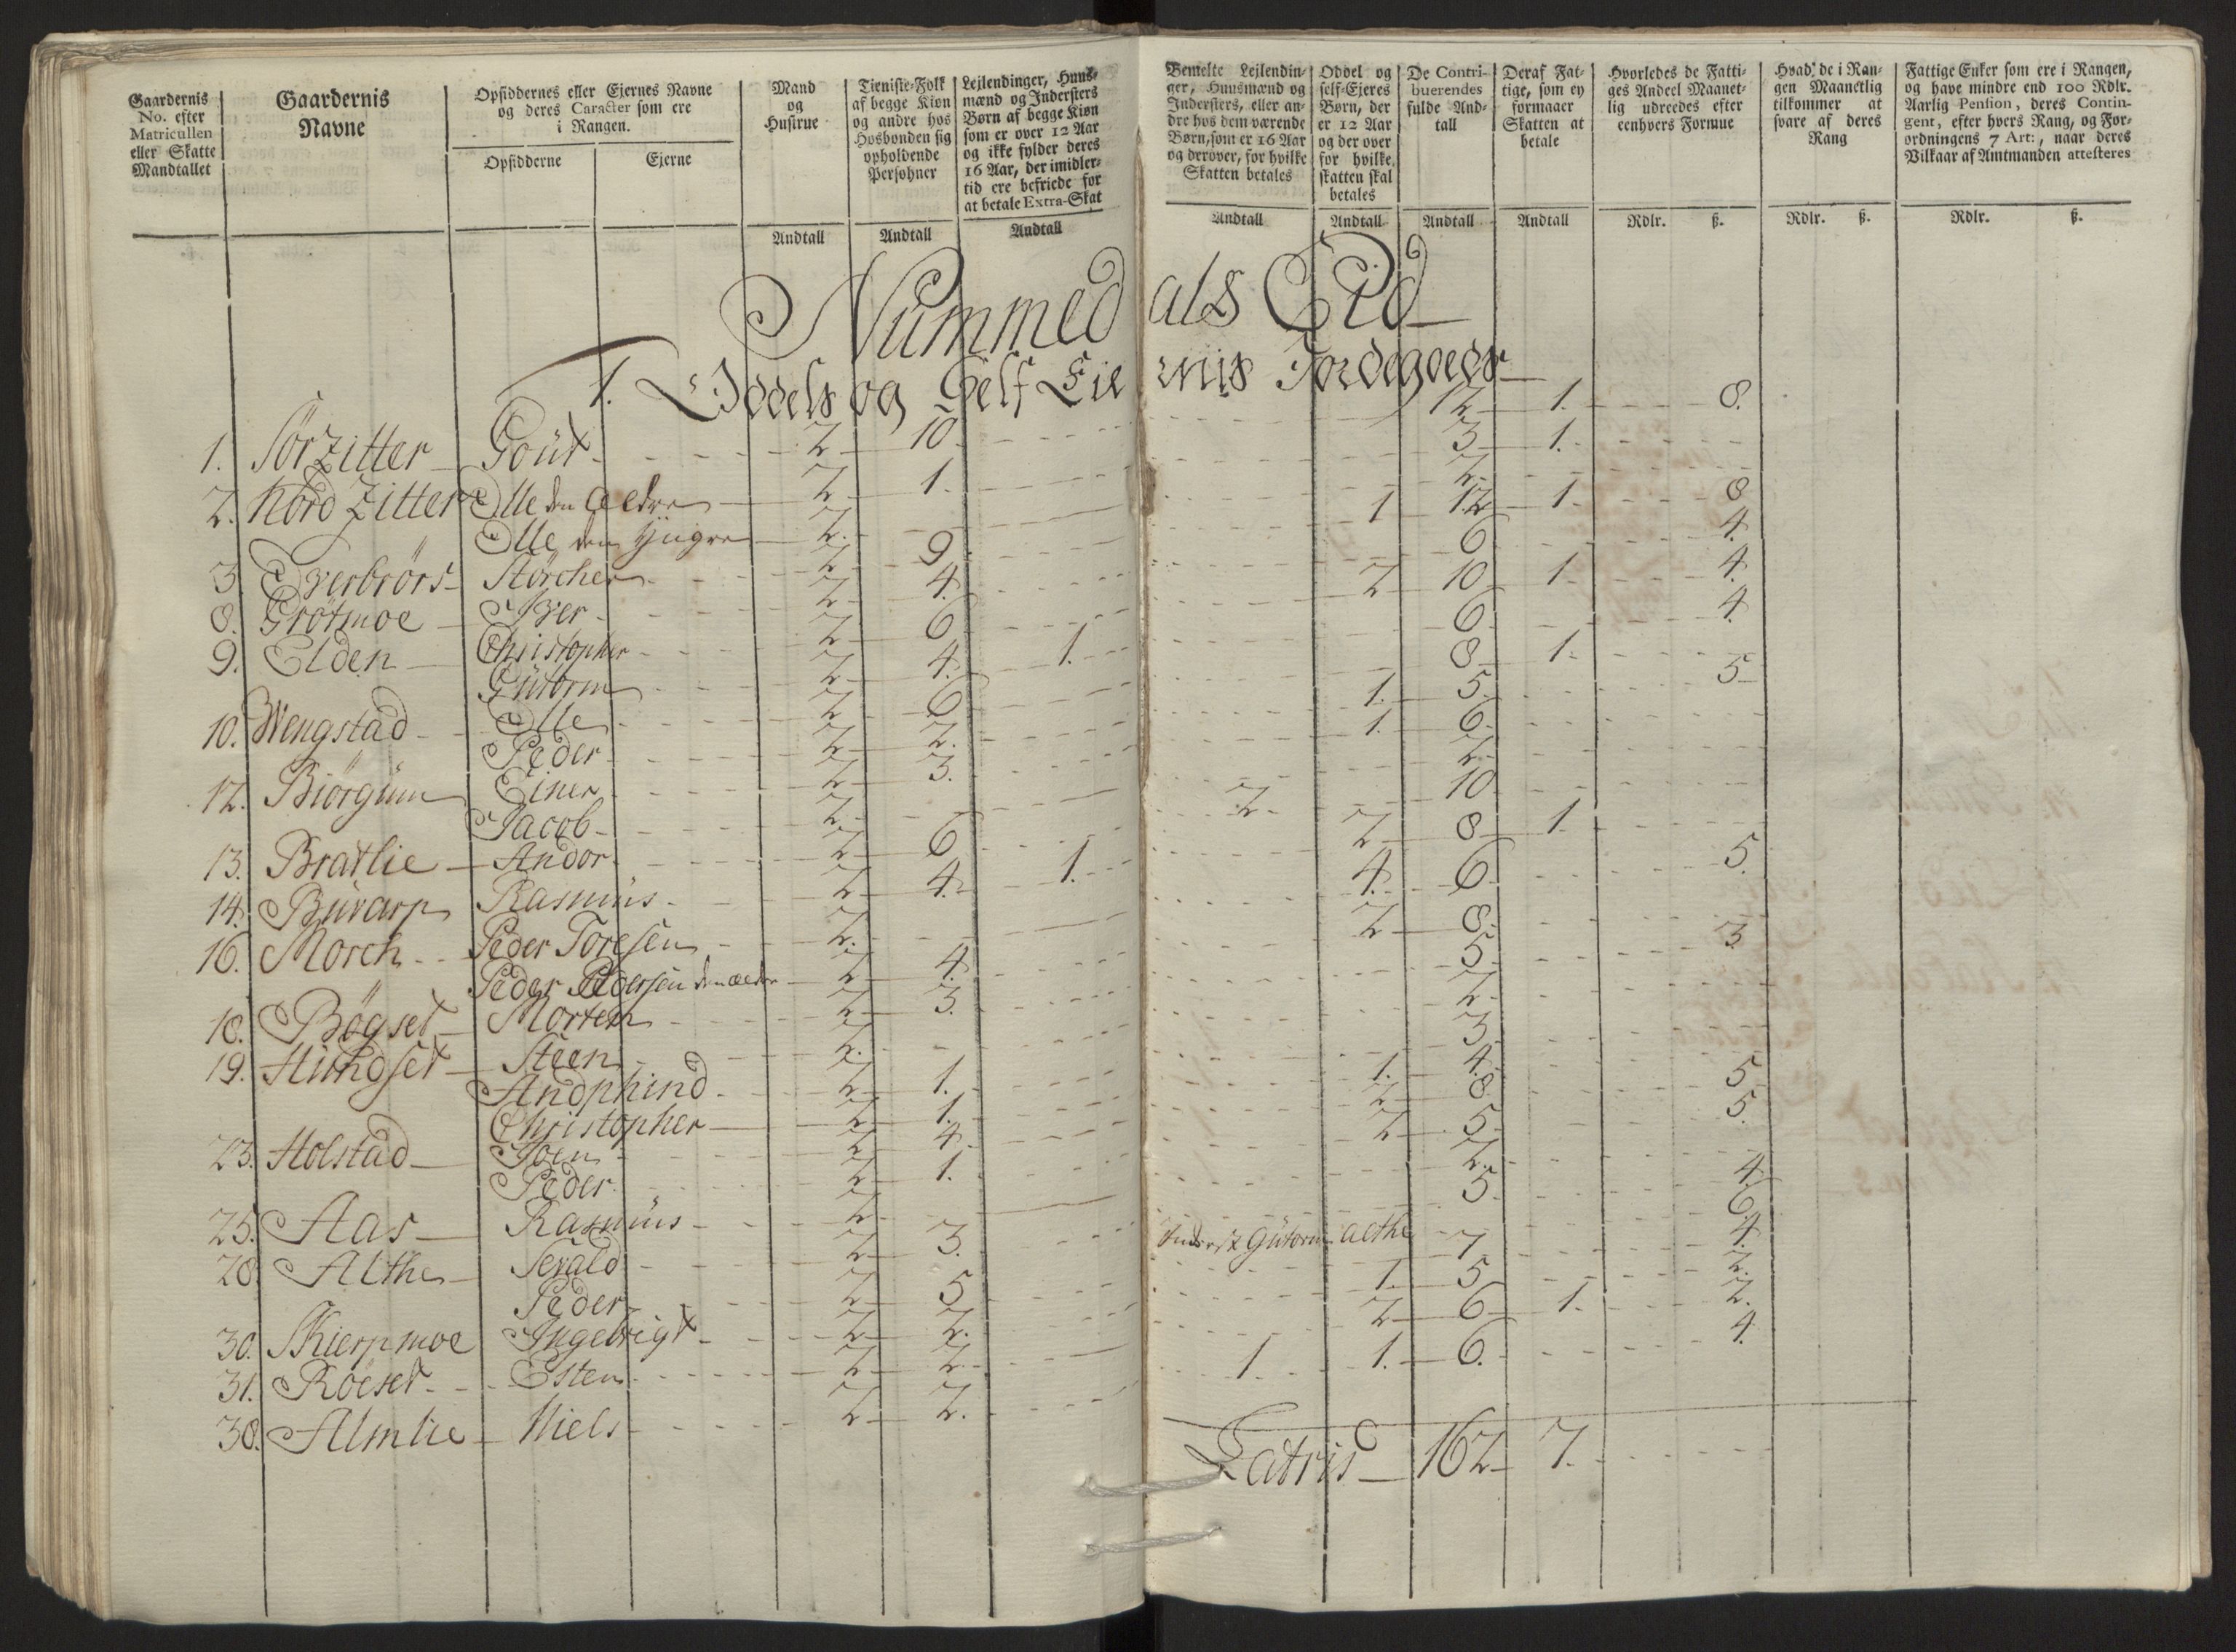 Gaardernis No. efter Matricullen eller Skatte Mandtallet
Gaardernis Navne
Opsiddernes eller Ejernes Navne og deres Caracter som ere i Rangen.
Opsidderne
Ejerne
Mand og Hustrue
Tieniste-Folk af begge Kiøn og andre hos Hosbonden sig opholdende Persohner
Lejlendinger, Huus-mænd og Indersters Børn af begge Kiøn som er over 12 Aar og ikke fylder deres 16 Aar, der imidler-tid ere befriede for at betale Extra-Skat
Andtall Andtall Andtall
Bemelte Lejlendin-ger, Huusmænd og Indersters, eller an-dre hos dem værende Børn, som er 16 Aar og derover, for hvilke Skatten betales
Oddel og self-Ejeres Børn, der er 12 Aar og der over for hvilke skatten skal betales
De Contri-buerendes fulde And-tall
Deraf Fat-tige, som ey formaaer Skatten at betale
Hvorledes de Fatti-ges Andeel Maanet-lig udreedes efter eenhvers Formue
Hvad de i Ran-gen Maanetlig tilkommer at svare af deres Rang
Fattige Enker som ere i Rangen, og have mindre end 100 Rdlr. Aarlig Pension, deres Contin-gent, efter hvers Rang, og For-ordningens 7 Art:, naar deres Vilkaar af Amtmanden attesteres
Andtall Andtall Andtall Andtall Rdlr. ß. Rdlr. ß. Rdlr. ß.
Nummedals Eid
1. Oddels og Self Eiernis Jordegoeds
1. Sörzitter Goüt 2 10 12 1. 8.
2. Nord Zitter Olle den Ældre 2 1. 3 1.
Olle den Yngre 2. 2
3 Overbrörs Störcher 2 9 1 12 1. 8
8. Grötmoe Iver 2 4. 6 4.
9. Elden Christopher 2 6 2 10 1 4.
Gutorm 2 4. 1. 6 4
10. Wengstad Olle 2 6 8 1.
Peder 2 2. 1. 5 5
12. Biörgüm Einer 2 3. 1. 6
Jacob 2 2
13. Bratlie Andor 2 6 2 10
14. Buvarp Rasmus 2 4. 1. 2 8 1
16. Morch Peder Toresen 2. 4. 6 5.
Peder Pedersen den ældre 2 4. 2 8.
18. Bögset Morten 2 3. 5 3
19. Hundset Steen 2. 2
Andphind 2 1. 3
Christopher 2 1. 1. 4
23. Holstad Joen 2 4. 2 8 5
Peder 2 1. 2 5 5.
25. Aas Rasmus 2 2.
28 Althe Sevald 2 3. 5 4
Peder 2 5 Inderst Gutorm Althe 7 6
30. Skierpmoe Ingebrigt 2 2. 1. 5 4.
31. Röeset Esten 2 2 2 6 1. 2.
38. Almlie Niels 2 2. 1 1. 6. 4.
Latris 162 7.